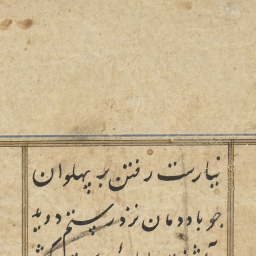 نیارست رفتن بر پهلوان
چو باد دمان نزد رستم دوید